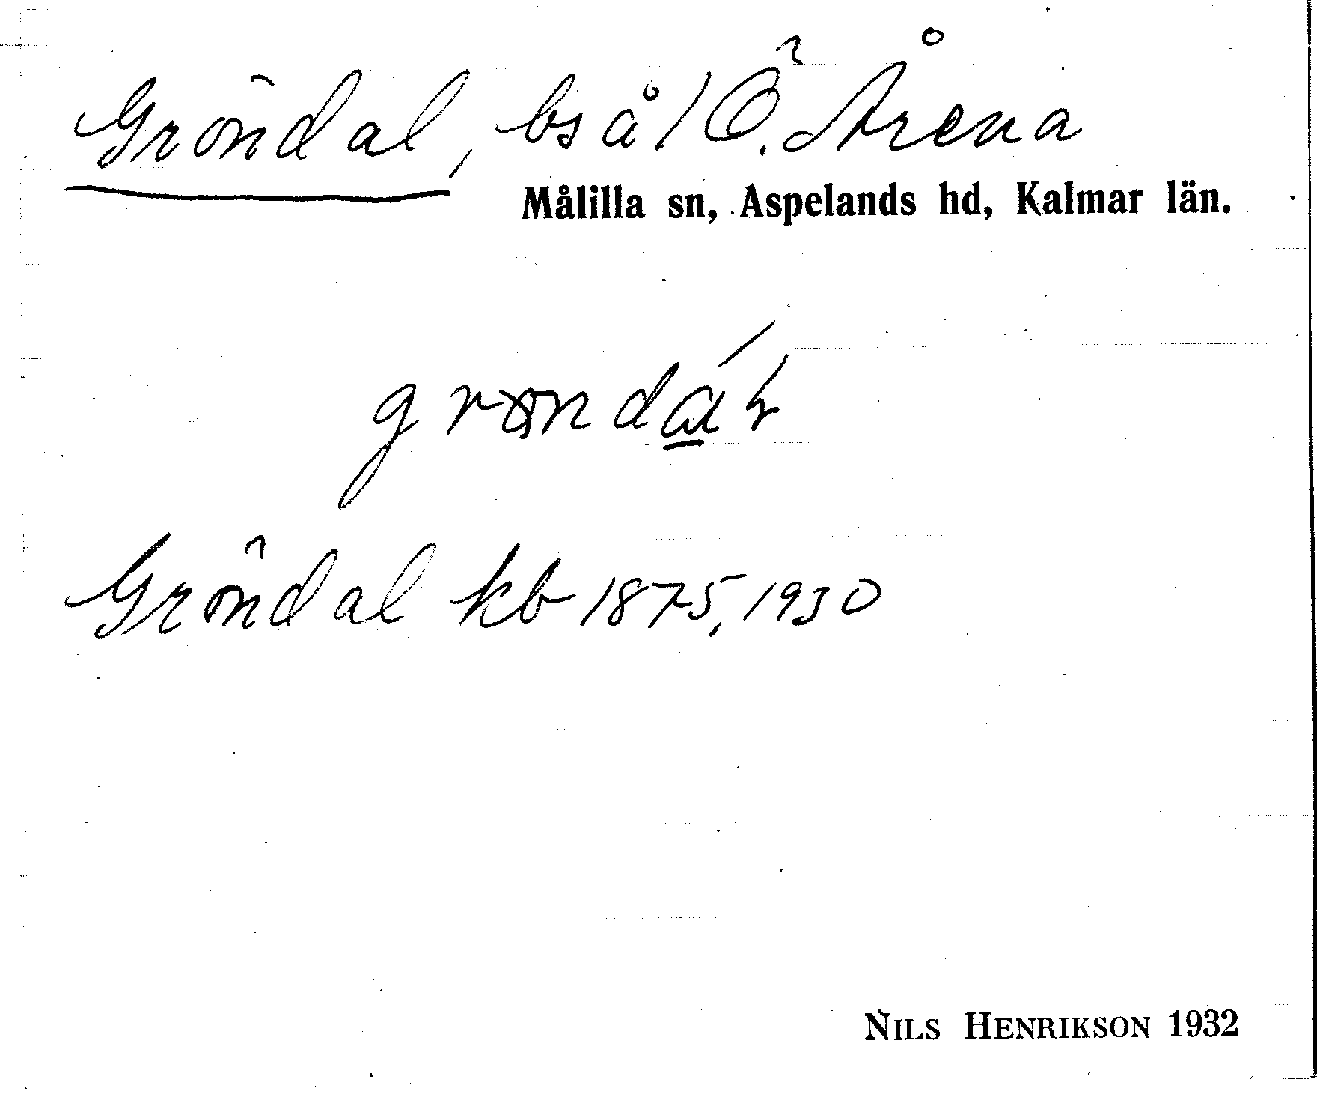 Gröndal, bs å 1 Ö. Årena
Målilla sn, Aspelands hd, Kalmar län.
Gröndal kb 1875, 1930
NILS HENRIKSON 1932